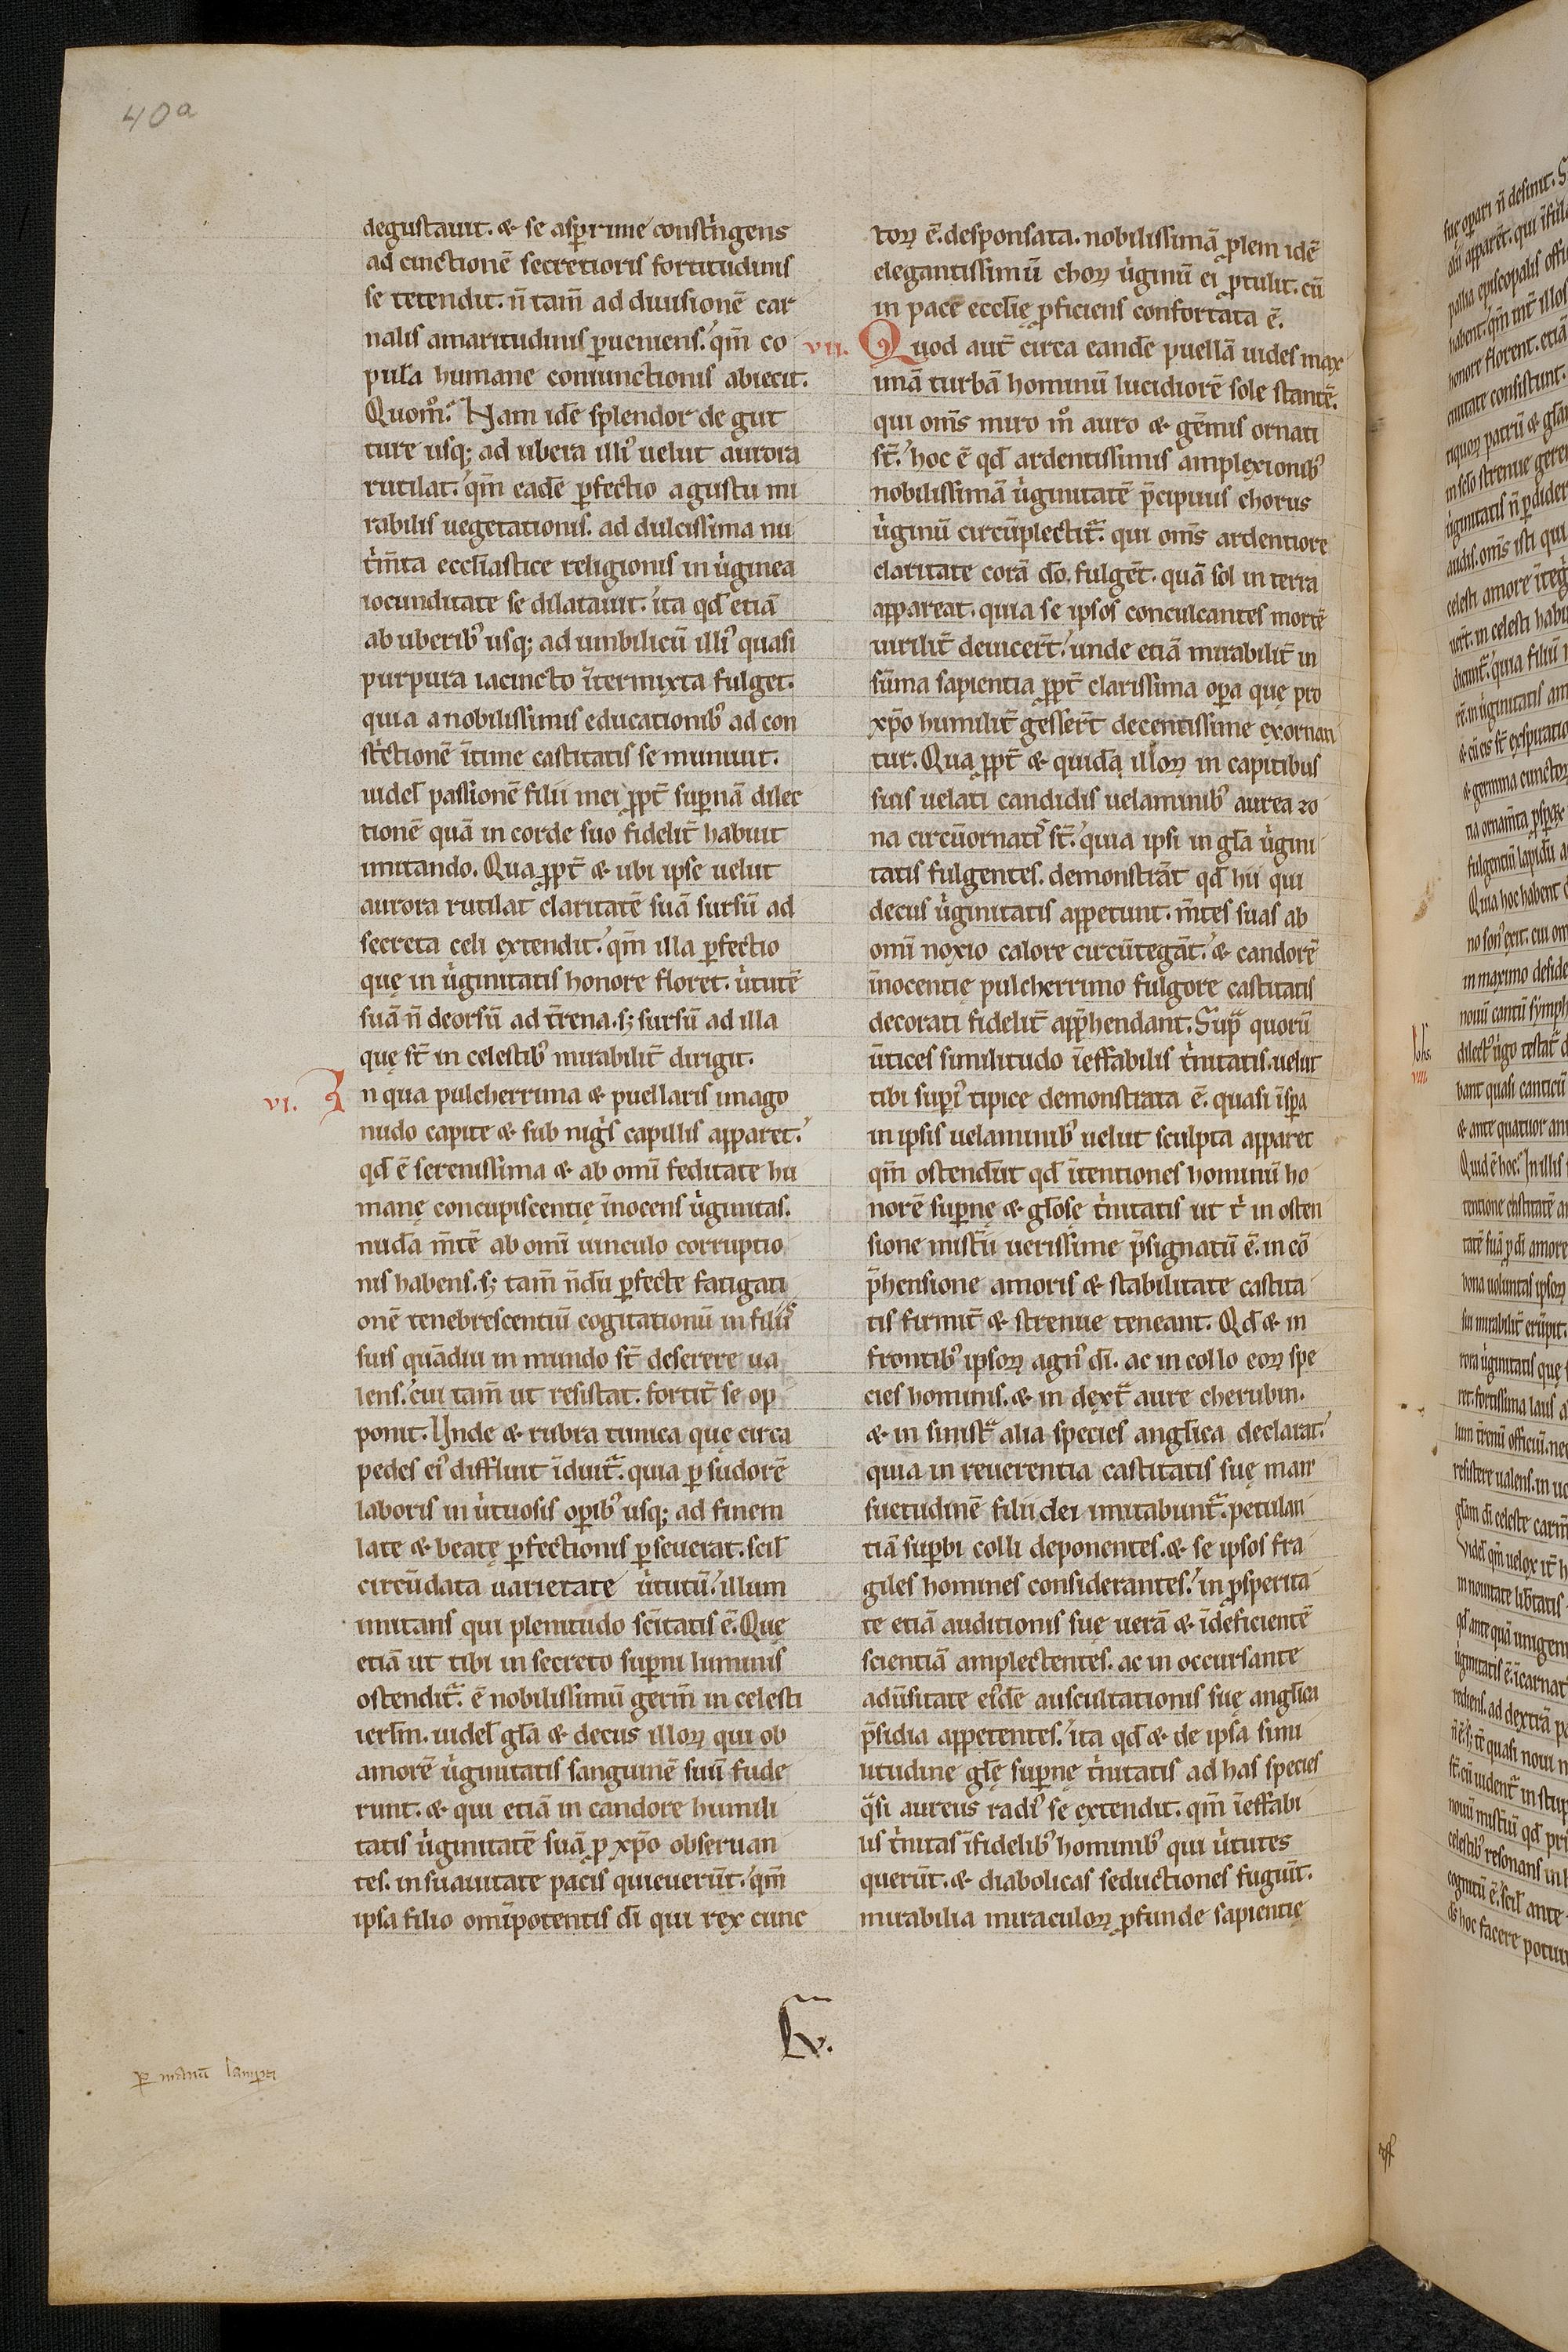 40a
degustauit. & se asp̱rrime constͥngens
ad cinctionē secretioris fortitudinis
se tetendit. n̄ tam̄ ad diuisionē car
nalis amaritudinis ꝑueniens. qm̄ co
pula humane coniunctionis abiecit.
Quom̊. Nam idē splendor de gut
ture usq; ad ubera illiꝰ uelut aurora
rutilat. qm̄ eadē ꝑfectio a gustu mi
rabilis uegetationis. ad dulcissima nu
tͥm̄ta eccl̄iastice religionis in uͥginea
iocunditate se dilatauit. ita qd̄ etiā
ab uberibꝰ usq; ad umbilicū illiꝰ quasi
purpura iacincto īt̄ermixta fulget.
quia a nobilissimis educationibꝰ ad con
stͥctionē īt̄ime castitatis se muniuit.
uidel̄ passionē filii mei ꝓpt̄ suꝑnā dilec
tionē quā in corde suo fidelit̄ habuit
imitando. Quaꝓpt̄ & ubi ipse uelut
aurora rutilat claritatē suā sursū ad
secreta celi extendit. qm̄ illa ꝑfectio
quę in uͥginitatis honore floret. uͥtutē
suā n̄ deorsū ad t̄rena. s; sursū ad illa
que st̄ in celestibꝰ mirabilit̄ dirigit.
vi. In qua pulcherrima & puellaris imago
nudo capite & sub nigͥs capillis apparet.
qd̄ ē serenissima & ab omī feditate hu
manę concupiscentię īnocens uͥginitas.
nudā m̄tē ab omī uinculo corruptio
nis habens. s; tam̄ n̄dū ꝑfecte fatigati
onē tenebrescentiū cogitationū in filiis
suis quādiu in mundo st̄ deserere ua
lens. cui tam̄ ut resistat. fortit̄ se op
ponit. Unde & rubra tunica que circa
pedes eiꝰ difflūt īduitᷓ. quia ꝑ sudorē
laboris in uͥtuosis oꝑibꝰ usq; ad finem
late & beatę ꝑfectionis ꝑseuerat. scil̄
circūdata uarietate uͥtutū. illum
imitans qui plenitudo sc̄itatis ē. Quę
etiā ut tibi in secreto suꝑni luminis
ostenditᷓ. ē nobilissimū germ̄ in celesti
ierl̄m. uidel̄ gl̄a & decus illoꝝ qui ob
amorē uͥginitatis sanguinē suū fude
runt. & qui etiā in candore humili
tatis uͥginitatē suā ꝓ xp̄o obseruan
tes. in suauitate pacis quieuerūt. qm̄
ipsa filio omīpotentis dī qui rex cunc
toꝝ ē. desponsata. nobilissimā ꝓlem idē
elegantissimū choꝝ uͥginū ei ꝓtulit. cū
in pace eccl̄ię ꝓficiens confortata ē.
vii. Quod aut̄ circa eandē puellā uides max
imā turbā hominū lucidiorē sole stantē.
qui om̄s miro m̊ auro & gēmis ornati
st̄. hoc ē qd̄ ardentissimis amplexionibꝰ
nobilissimā uͥginitatē p̄cipuus chorus
uͥginū circūplectitᷓ. qui om̄s ardentiore
claritate corā dō. fulgēt. quā sol in terra
appareat. quia se ipsos conculcantes mortē
uirilit̄ deuicer̄t. unde etiā mirabilit̄ in
sūma sapientia ꝓpt̄ clarissima oꝑa quę pro
xp̄o humilit̄ gesser̄t decentissime exornan
tur. Quaꝓpt̄ & quidā illoꝝ in capitibus
suis uelati candidis uelaminibꝰ aurea zo
na circūornati st̄. quia ipsi in gl̄a uͥgini
tatis fulgentes. demonstrāt qd̄ hii qui
decus uͥginitatis appetunt. m̄tes suas ab
omī noxio calore circūtegāt. & candorē
īnocentię pulcherrimo fulgore castitatis
decorati fidelit̄ app̄hendant. Supᷓ quorū
ūtices similitudo īeffabilis tͥnitatis. uelut
tibi supiꝰ tipice demonstrata ē. quasi īsꝑa
in ipsis uelaminibꝰ uelut sculpta apparet
qm̄ ostendūt qd̄ īt̄entiones hominū ho
norē suꝑnę & gl̄osę tͥnitatis ut tͥ in osten
sione mist̄ii uerissime p̄signatū ē. in cō
p̄hensione amoris & stabilitate castita
tis firmit̄ & strenue teneant. Qd̄ & in
frontibꝰ ipsoꝝ agnꝰ dī. ac in collo eoꝝ spe
cies hominis. & in dextᷓ aure cherubin.
& in sinistᷓ alia species angl̄ica declarat.
quia in reuerentia castitatis suę man
suetudinē filii dei imitabuntᷓ. petulan
tiā suꝑbi colli deponentes. & se ipsos fra
giles homines considerantes. in ꝓsperita
te etiā auditionis suę uerā & īdeficientē
scientiā amplectentes. ac in occursante
adūsitate eiꝰdē auscultationis suę angl̄ica
p̄sidia appetentes. ita qd̄ & de ipsa simi
litudine gl̄ę suꝑnę tͥnitatis ad has species
qᷓsi aureus radiꝰ se extendit. qm̄ īeffabi
lis tͥnitas īfidelibꝰ hominibꝰ qui uͥtutes
querūt. & diabolicas seductiones fugiūt.
mirabilia miraculoꝝ ꝓfunde sapientię
ꝑ manū lamperti